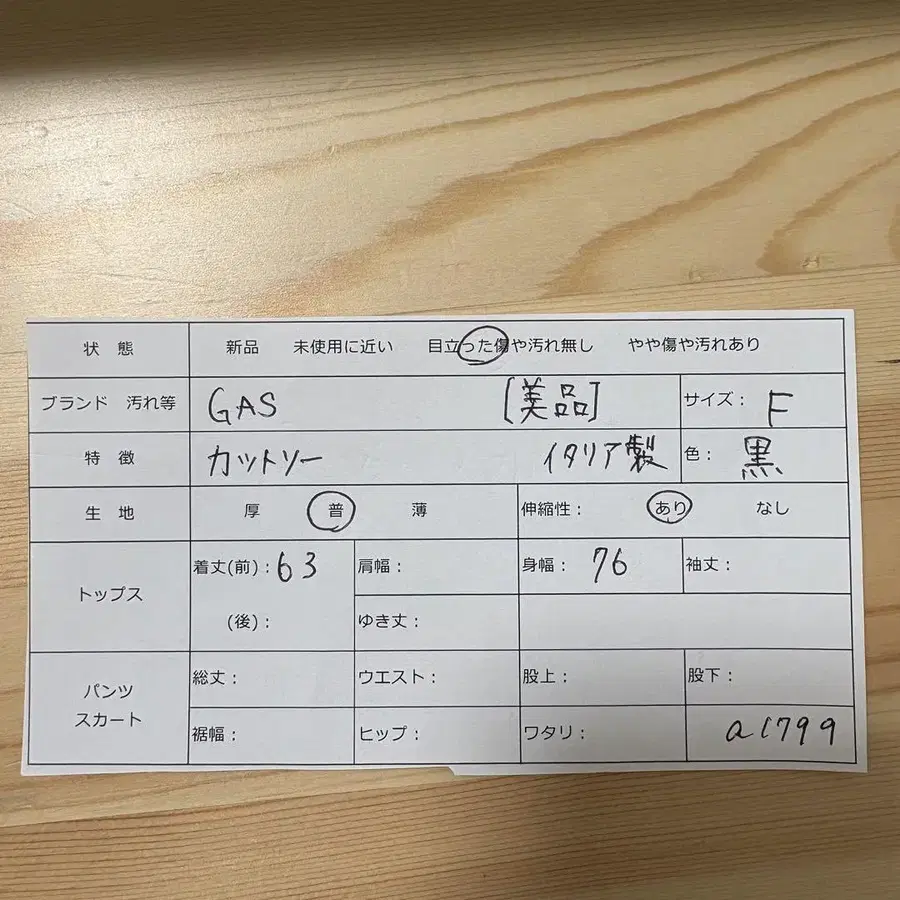 状 態 新品 未使用に近い 目立った傷や汚れ無し やや傷や汚れあり
ブランド 汚れ等 GAS [美品] サイズ： F
特 徴 カットソー イタリア製 色： 黒
生 地 厚 普 薄 伸縮性： あり なし
トップス 着丈(前)：63 肩幅： 身幅： 76 袖丈：
(後)： ゆき丈：
パンツ スカート 総丈： ウエスト： 股上： 股下：
裾幅： ヒップ： ワタリ： a1799